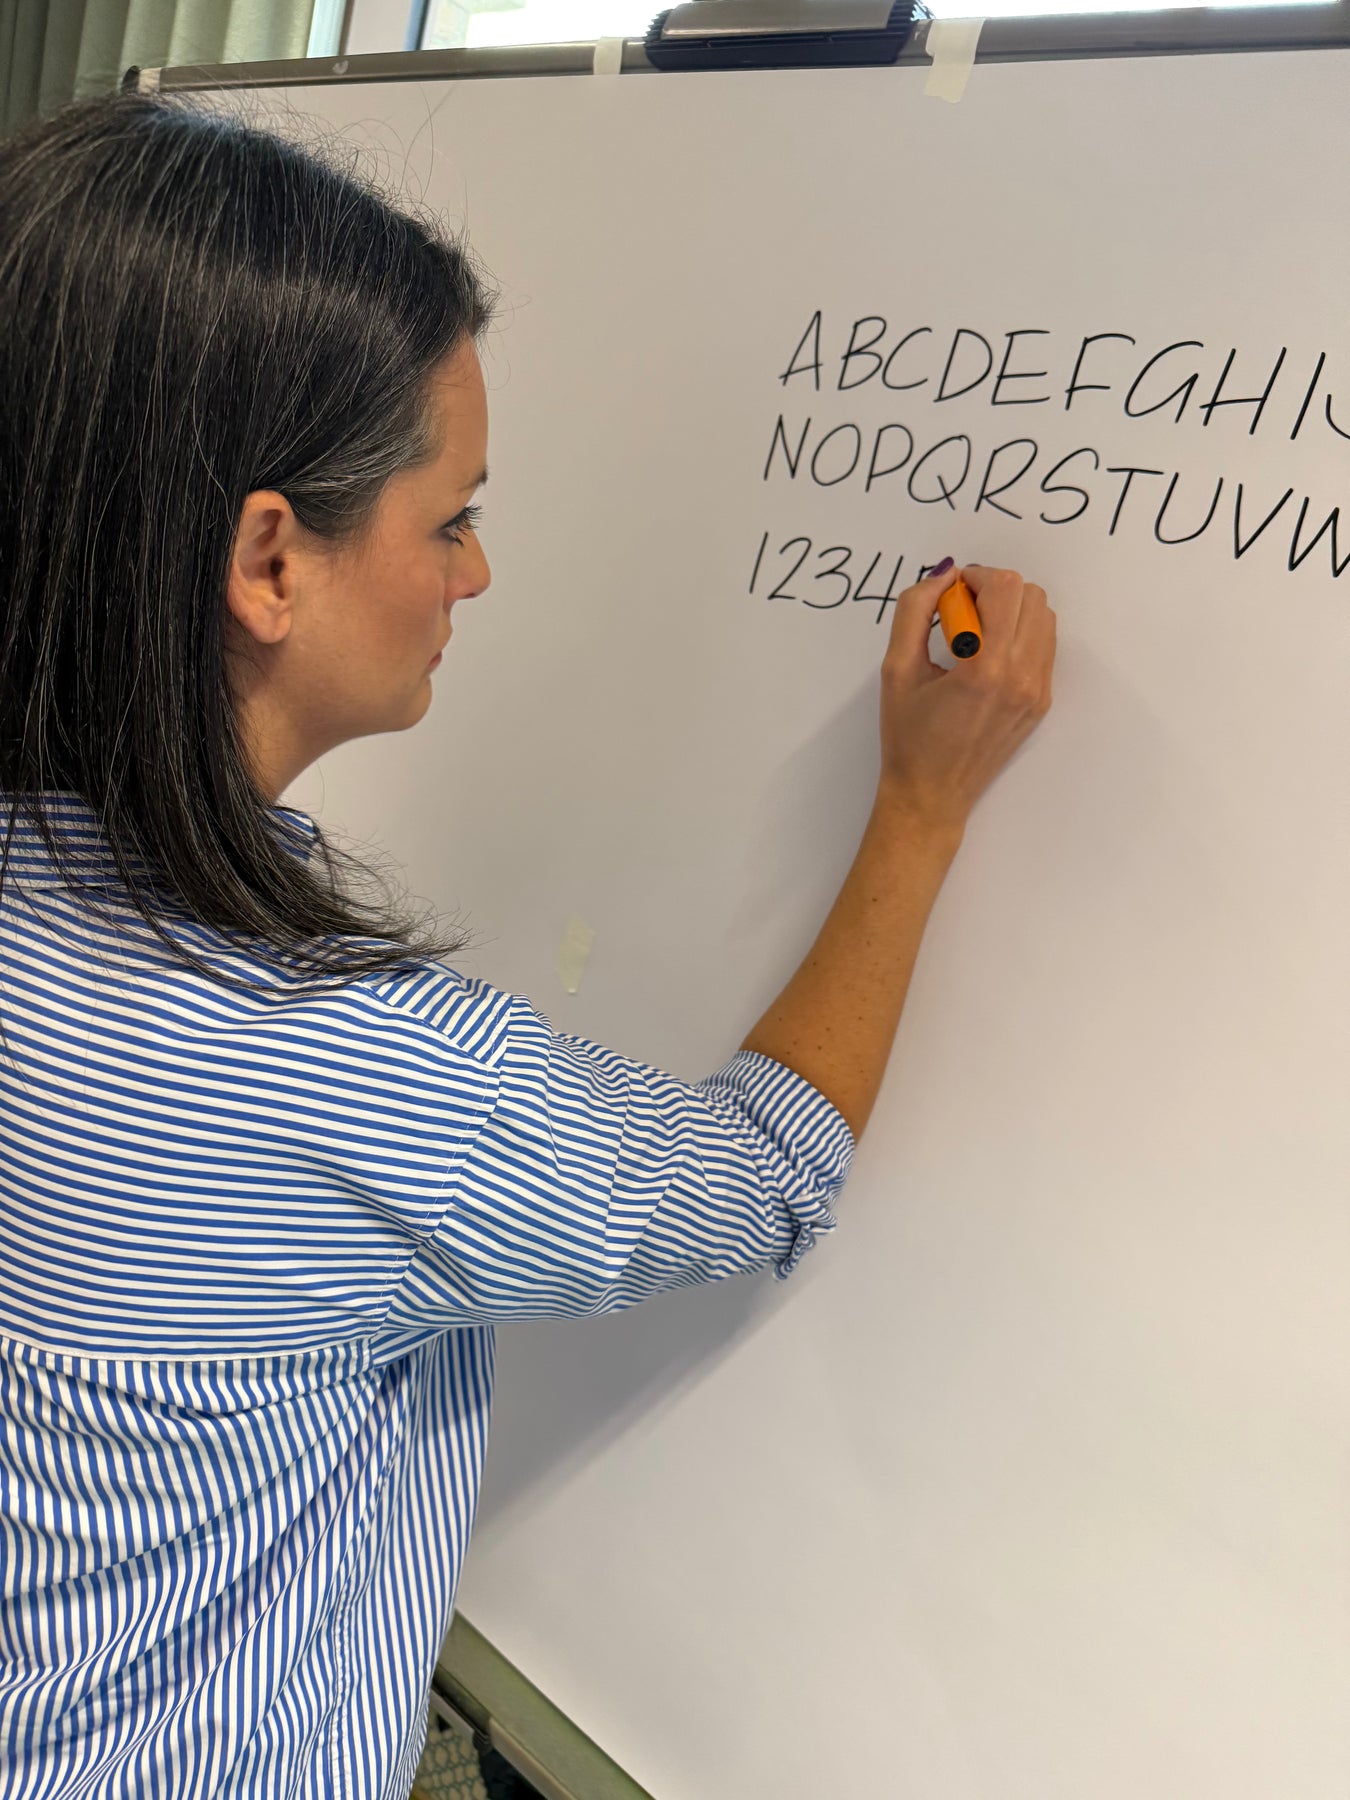 ABCDEFGHIJ
NOPQRSTUVW
12345